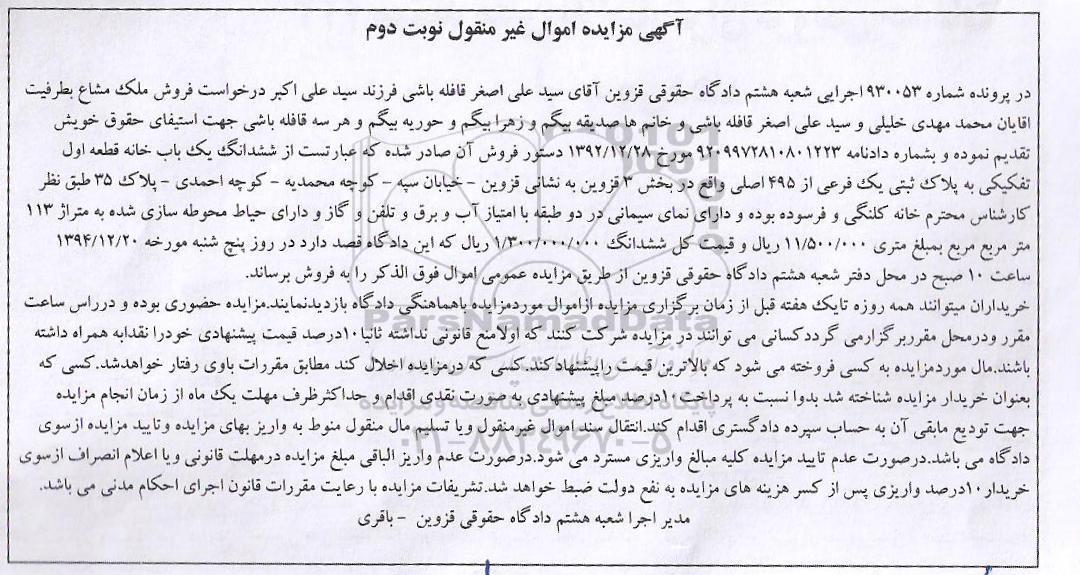 آگهی مزایده اموال غیر منقول نوبت دوم
در پرونده شماره ۹۳۰۰۵۳ اجرایی شعبه هشتم دادگاه حقوقی قزوین آقای سید علی اصغر قافله باشی فرزند سید علی اکبر درخواست فروش ملک مشاع بطرفیت
اقایان محمد مهدی خلیلی و سید علی اصغر قافله باشی و خانم ها صدیقه بیگم و زهرا بیگم و حوریه بیگم و هر سه قافله باشی جهت استیفای حقوق خویش
تقدیم نموده و بشماره دادنامه ۹۲۰۹۹۷۲۸۱۰۸۰۱۲۲۳ مورخ ۱۳۹۲/۱۲/۲۸ دستور فروش آن صادر شده که عبارتست از ششدانگ یک باب خانه قطعه اول
تفکیکی به پلاک ثبتی یک فرعی از ۴۹۵ اصلی واقع در بخش ۳ قزوین به نشانی قزوین - خیابان سپه - کوچه محمدیه - کوچه احمدی - پلاک ۳۵ طبق نظر
کارشناس محترم خانه کلنگی و فرسوده بوده و دارای نمای سیمانی در دو طبقه با امتیاز آب و برق و تلفن و گاز و دارای حیاط محوطه سازی شده به متراژ ۱۱۳
متر مربع مربع بمبلغ متری ۱۱/۵۰۰/۰۰۰ ریال و قیمت کل ششدانگ ۱/۳۰۰/۰۰۰/۰۰۰ ریال که این دادگاه قصد دارد در روز پنج شنبه مورخه ۱۳۹۴/۱۲/۲۰
ساعت ۱۰ صبح در محل دفتر شعبه هشتم دادگاه حقوقی قزوین از طریق مزایده عمومی اموال فوق الذکر را به فروش برساند.
خریداران میتوانند همه روزه تایک هفته قبل از زمان برگزاری مزایده ازاموال موردمزایده باهماهنگی دادگاه بازدیدنمایند.مزایده حضوری بوده و درراس ساعت
مقرر ودرمحل مقرربر گزارمی گردد.کسانی می توانند در مزایده شرکت کنند که اولامنع قانونی نداشته ثانیا۱۰درصد قیمت پیشنهادی خودرا نقدابه همراه داشته
باشند.مال موردمزایده به کسی فروخته می شود که بالاترین قیمت راپیشنهادکند.کسی که درمزایده اخلال کند مطابق مقررات باوی رفتار خواهدشد.کسی که
بعنوان خریدار مزایده شناخته شد بدوا نسبت به پرداخت۱۰درصد مبلغ پیشنهادی به صورت نقدی اقدام و حداکثرظرف مهلت یک ماه از زمان انجام مزایده
جهت تودیع مابقی آن به حساب سپرده دادگستری اقدام کند.انتقال سند اموال غیرمنقول ویا تسلیم مال منقول منوط به واریز بهای مزایده وتایید مزایده ازسوی
دادگاه می باشد.درصورت عدم تایید مزایده کلیه مبالغ واریزی مسترد می شود.درصورت عدم واریز الباقی مبلغ مزایده درمهلت قانونی ویا اعلام انصراف ازسوی
خریدار۱۰درصد واریزی پس از کسر هزینه های مزایده به نفع دولت ضبط خواهد شد.تشریفات مزایده با رعایت مقررات قانون اجرای احکام مدنی می باشد.
مدیر اجرا شعبه هشتم دادگاه حقوقی قزوین - باقری
ParsNamadData
پایگاه اطلاع رسانی مناقصه و مزایده
۰۲۱-۸۸۳۴۹۶۷۰-۵